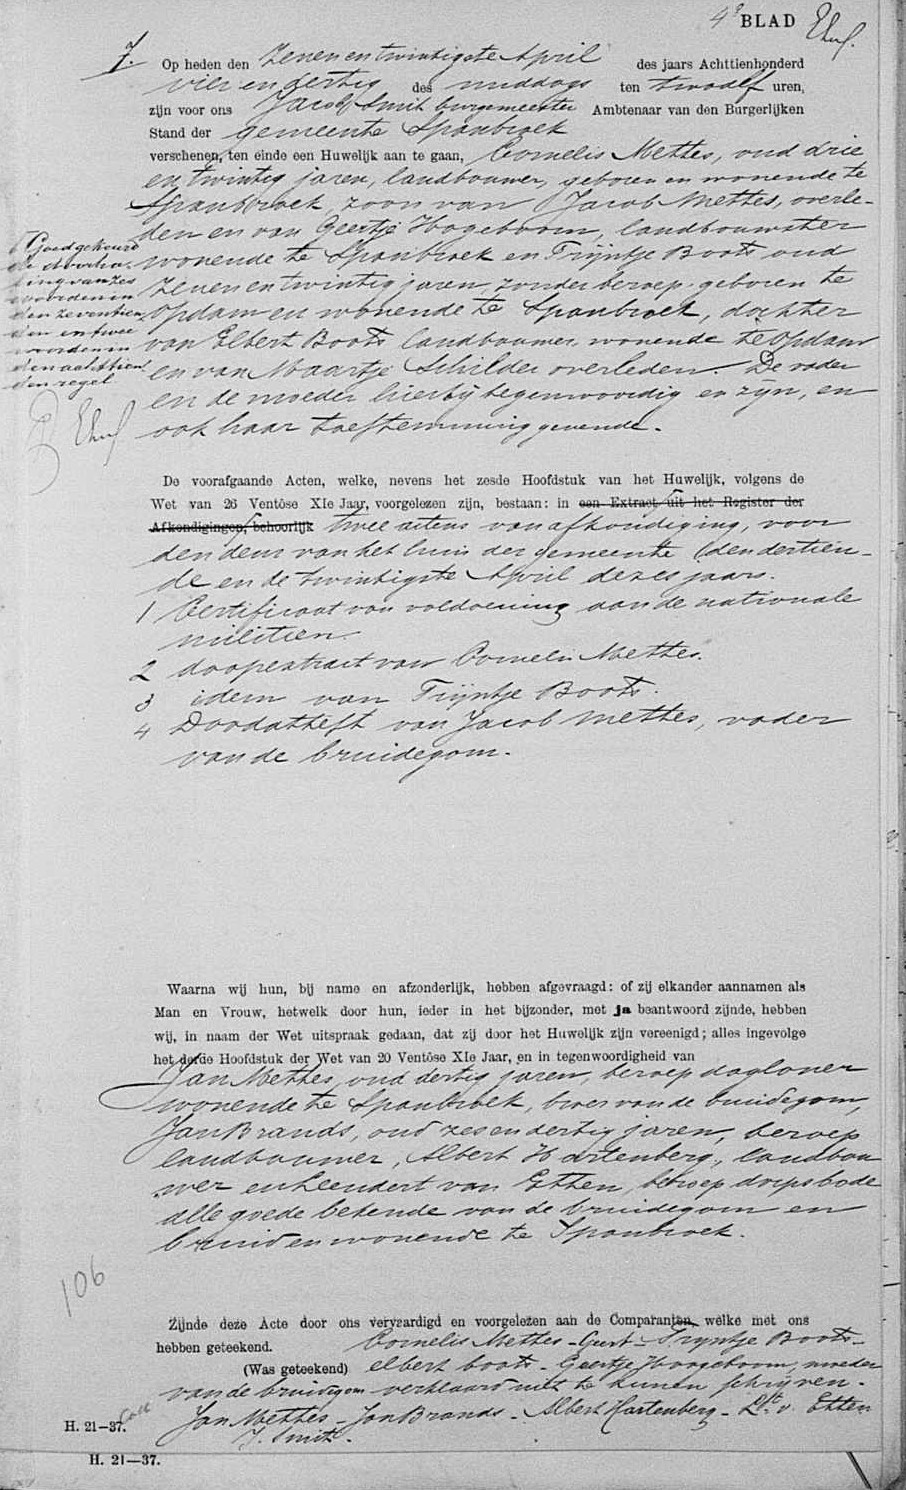 4e BLAD
7. Op heden den Zevenentwintigste April des jaars Achttienhonderd
vier en dertig des middags ten twaalf uren,
zijn voor ons Jacob Smit burgemeester Ambtenaar van den Burgerlijken
Stand der gemeente Spanbroek
verschenen, ten einde een Huwelijk aan te gaan, Cornelis Mettes, oud drie
en twintig jaren, landbouwer, geboren en wonende te
Spanbroek, zoon van Jacob Mettes, overle-
den en van Geertje Hoogeboom, landbouwster
wonende te Spanbroek en Trijntje Boots oud
zevenentwintig jaren, zonder beroep, geboren te
Opdam en wonende te Spanbroek, dochter
van Elbert Boots landbouwer, wonende te Opdam
en van Maartje Schilder overleden. De vader
en de moeder hierbij tegenwoordig en zijn, en
ook haar toestemming gevende.
Goedgekeurd
de doorha-
ling van zes
woorden in
den zeventien
den en twee
woorden in
den achttien
den regel
De voorafgaande Acten, welke, nevens het zesde Hoofdstuk van het Huwelijk, volgens de
Wet van 26 Ventôse XIe Jaar, voorgelezen zijn, bestaan: in een Extract uit het Register der
Afkondigingen, behoorlijk twee actens van afkondiging, voor
den deur van het huis der gemeente den dertien-
de en de twintigste April dezes jaars.
1 Certificaat van voldoening aan de nationale
militien.
2 doopextract van Cornelis Mettes.
3 idem van Trijntje Boots.
4 Doodattest van Jacob Mettes, vader
van de bruidegom.
Waarna wij hun, bij name en afzonderlijk, hebben afgevraagd: of zij elkander aannamen als
Man en Vrouw, hetwelk door hun, ieder in het bijzonder, met ja beantwoord zijnde, hebben
wij, in naam der Wet uitspraak gedaan, dat zij door het Huwelijk zijn vereenigd; alles ingevolge
het derde Hoofdstuk der Wet van 20 Ventôse XIe Jaar, en in tegenwoordigheid van
Jan Mettes, oud dertig jaren, beroep dagloner
wonende te Spanbroek, broer van de bruidegom,
Jan Brands, oud zesendertig jaren, beroep
landbouwer, Albert Hartenberg, landbou
wer en Leendert van Etten, beroep dorpsbode
alle goede bekende van de bruidegom en
bruid en wonende te Spanbroek.
106
Zijnde deze Acte door ons vervaardigd en voorgelezen aan de Comparanten welke met ons
hebben geteekend. Cornelis Mettes - Guurt - Tryntje Boots -
(Was geteekend) elbert boots - Geertje Hoogeboom, moeder
van de bruidegom verklaard niet te kunnen schrijven -
Jan Mettes - Jan Brands - Albert Hartenberg - Lt. v. Etten
J. Smit.
H. 21-37.
H. 21—37.